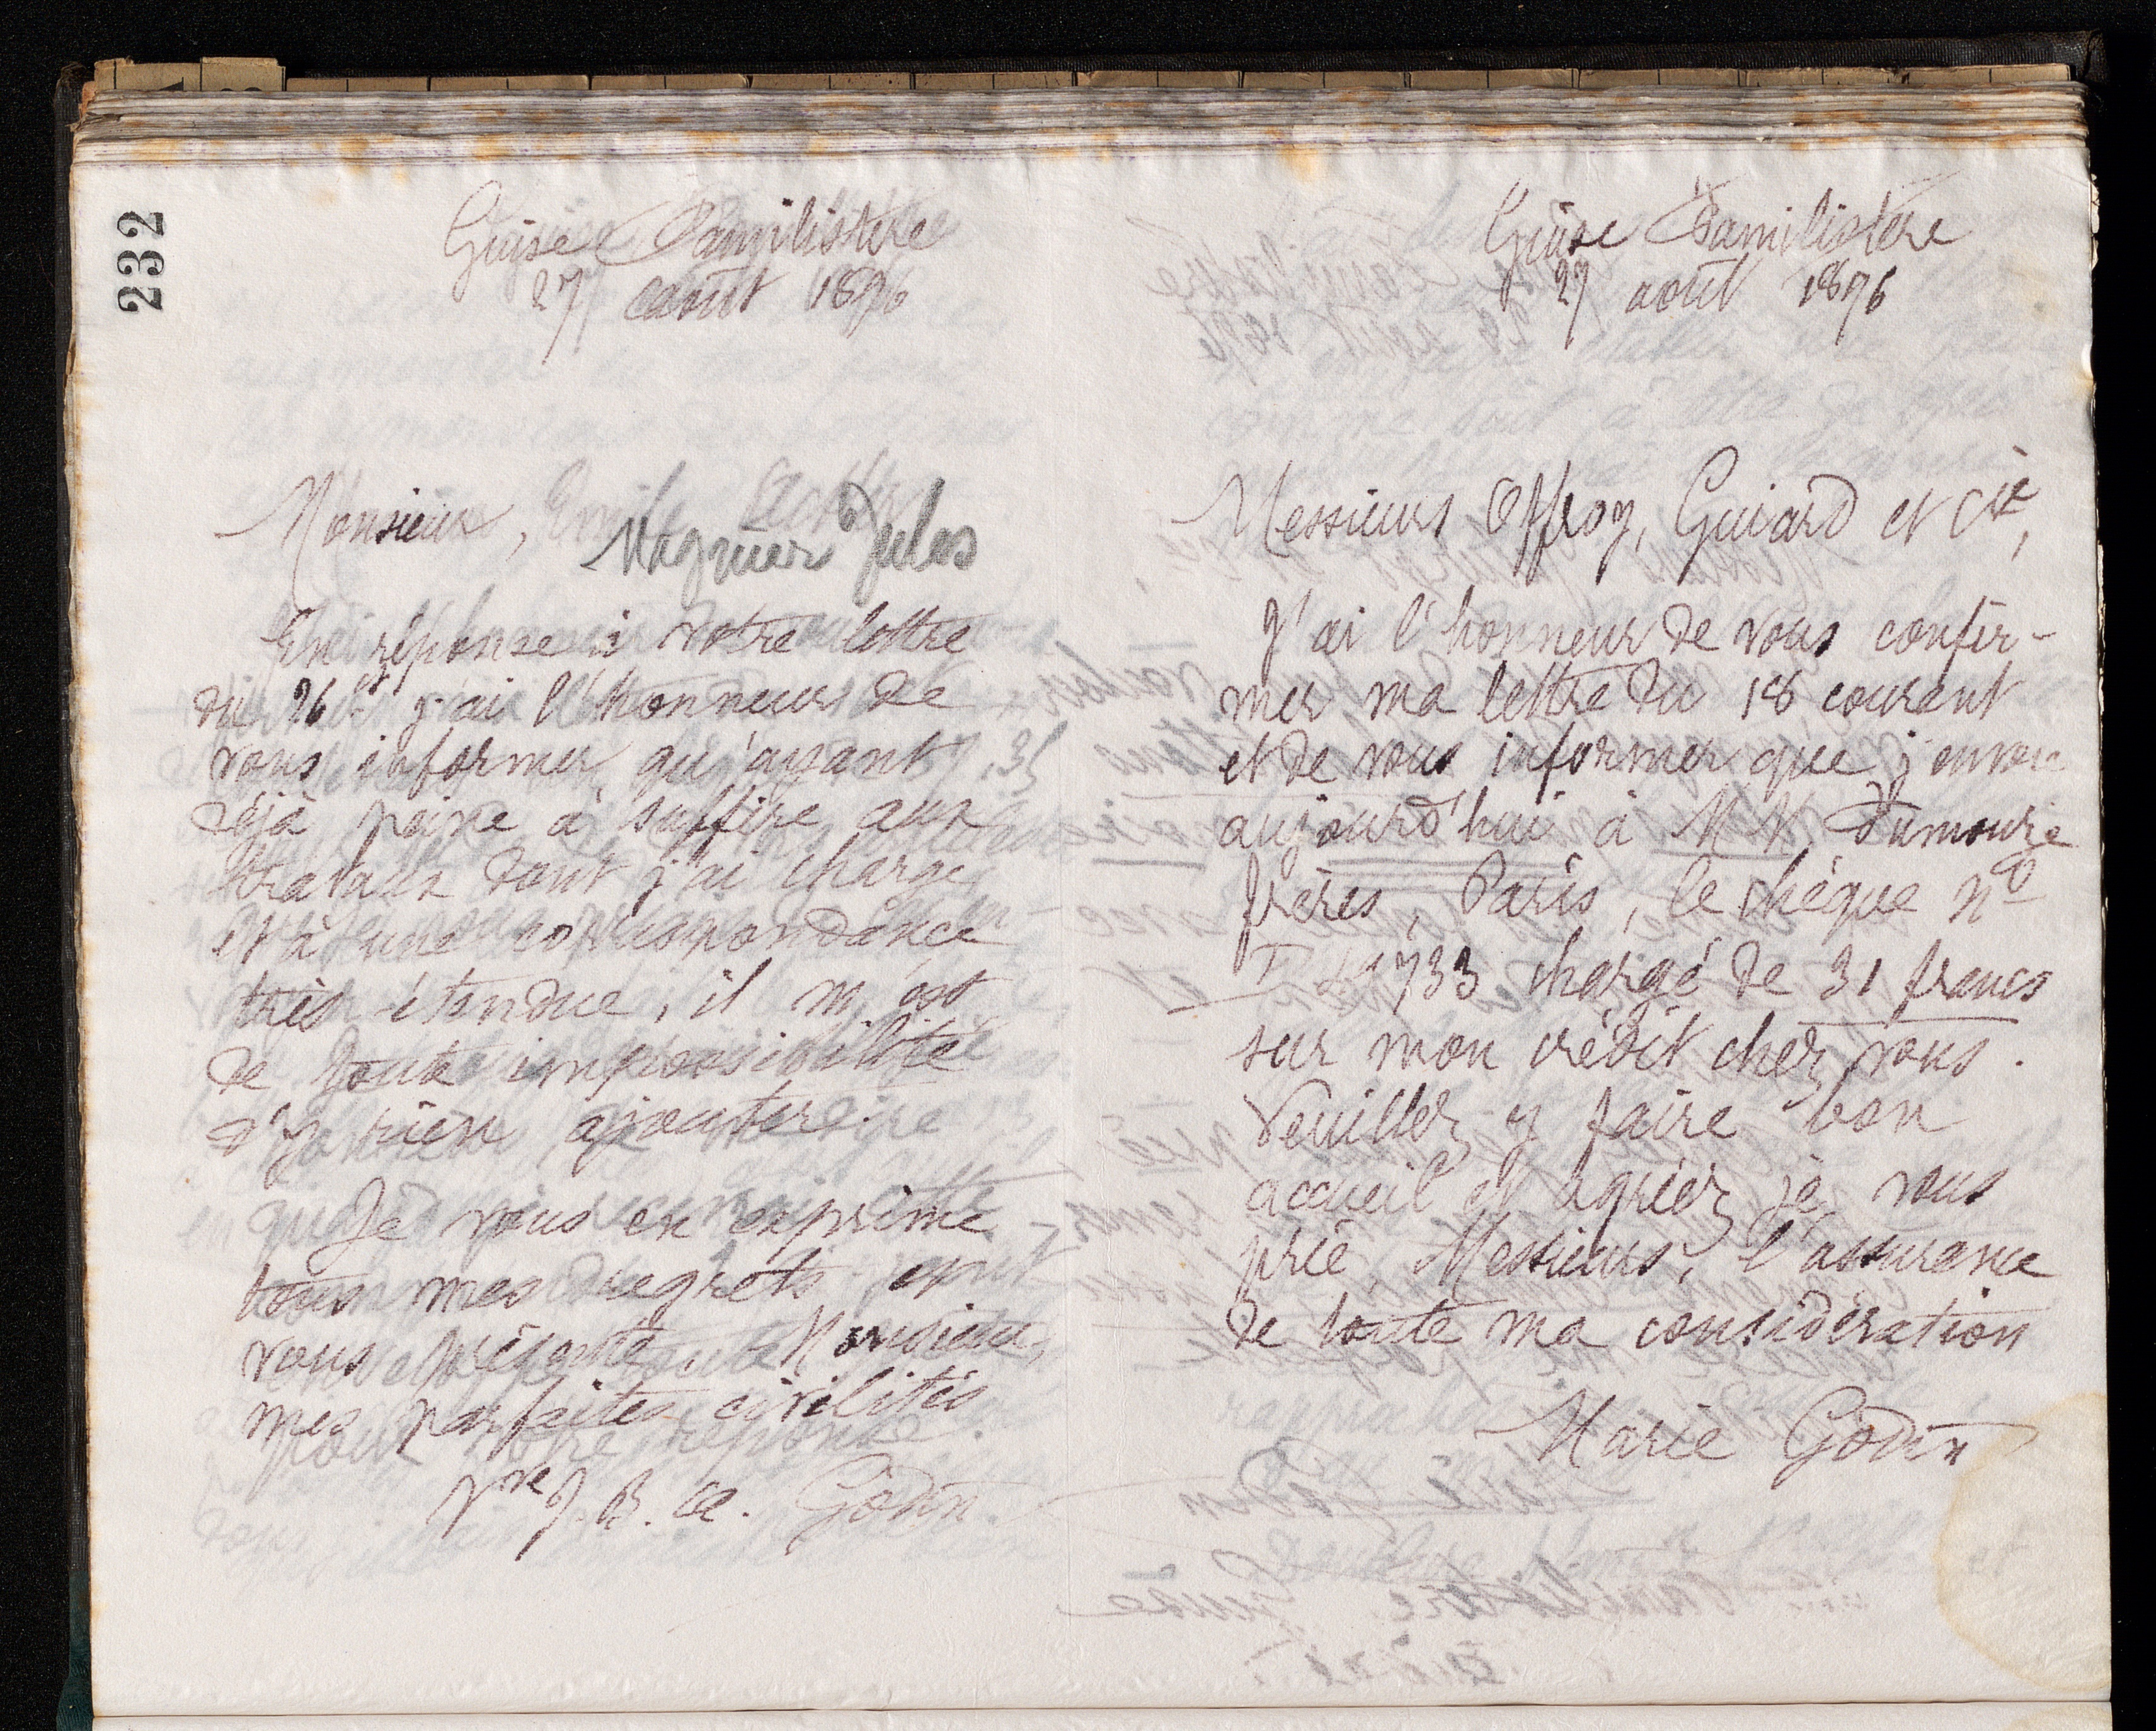 232
Guise Familistère
27 août 1896
Monsieur,
Magnier Jules
En réponse à votre lettre
du 26 ct j'ai l'honneur de
vous informer qu'ayant
déjà peine à suffire aux
travaux dont j'ai charge
et à une correspondance
très étendue, il m'est
de toute impossibilité
d'y rien ajouter.
Je vous en exprime
tous mes regrets et
vous présente, Monsieur,
mes parfaites civilités
Vve J. B. A. Godin
Guise Familistère
27 août 1896
Messieurs Offroy, Guiard et Cie,
J'ai l'honneur de vous confir-
mer ma lettre du 18 courant
et de vous informer que j'envoie
aujourd'hui à MM. Dumoure
frères, Paris, le chèque No
733 chargé de 31 francs
sur mon crédit chez vous.
Veuillez y faire bon
accueil et agréer, je vous
prie, Messieurs, l'assurance
de toute ma considération
Marie Godin